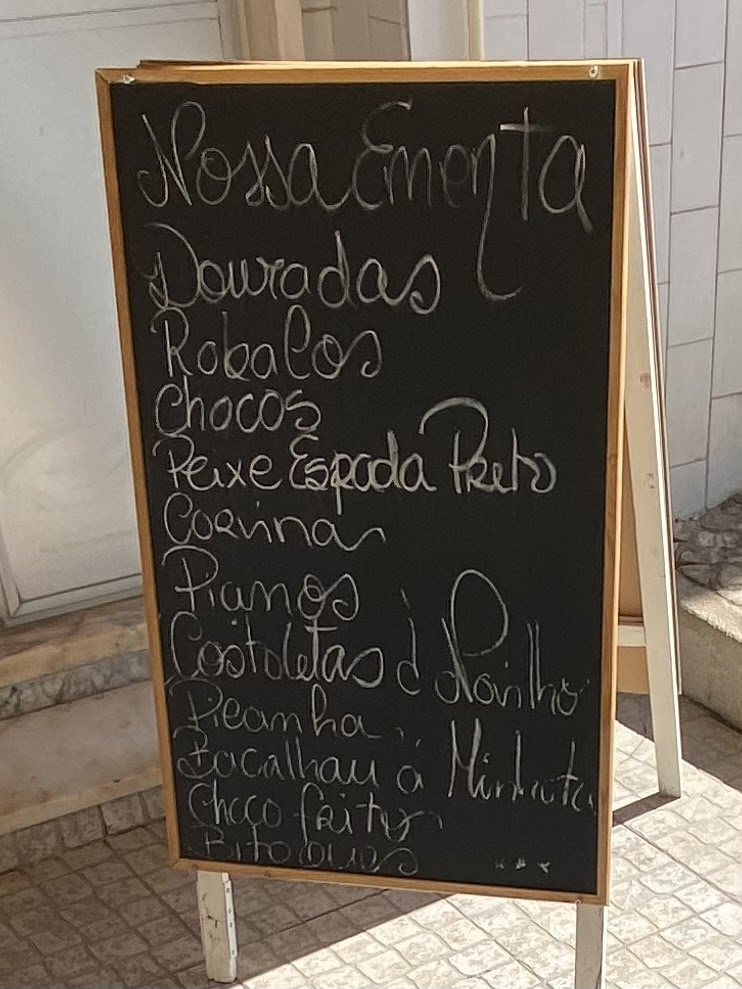 Nossa Ementa
Douradas
Robalos
Chocos
Peixe Espada Preto
Corvina
Pianos
Costoletas à
Picanha
Bacalhau à Minhota
Choco frito
Bitoques